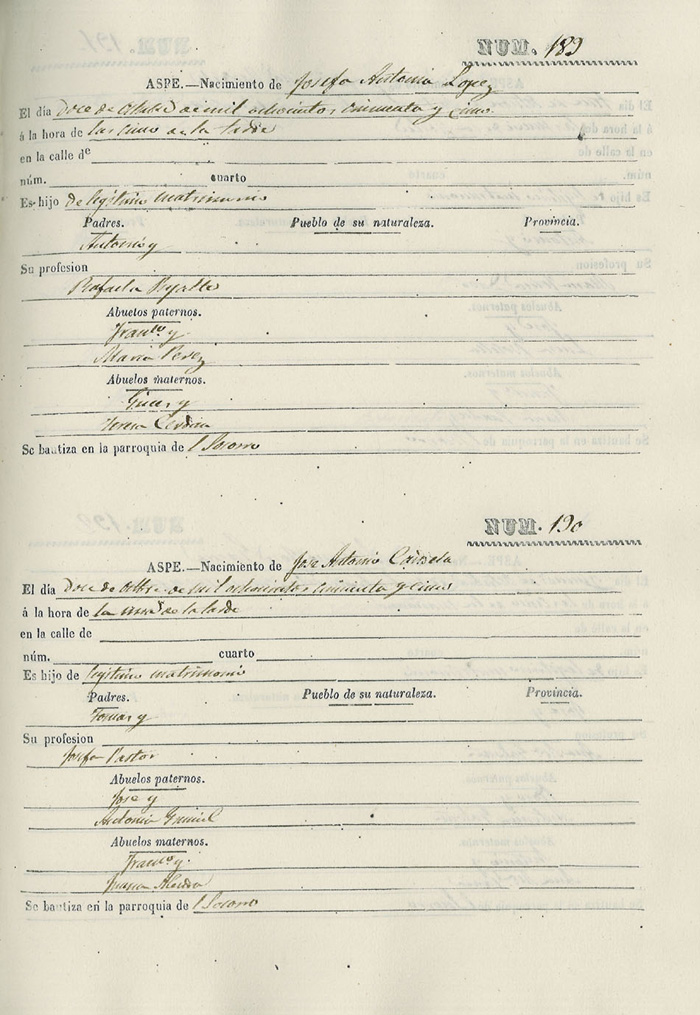 NUM. 189
ASPE.—Nacimiento de Josefa Antonia Lopez
El dia Doce de Octubre de mil ochocientos cincuenta y cinco
á la hora de las cinco de la tarde
en la calle de
núm. cuarto
Es hijo de legitimo matrimonio
Padres. Pueblo de su naturaleza. Provincia.
Antonio y
Su profesion
Rafaela
Abuelos paternos.
Franco y
Maria Perez
Abuelos maternos.
Gines y
Teresa
Se bautiza en la parroquia de l Socorro
NUM. 190
ASPE.—Nacimiento de Jose Antonio
El dia Doce de Octbre de mil ochocientos cincuenta y cinco
á la hora de la una de la tarde
en la calle de
núm. cuarto
Es hijo de legitimo matrimonio
Padres. Pueblo de su naturaleza. Provincia.
Tomas y
Su profesion
Josefa Pastor
Abuelos paternos.
Jose y
Antonia
Abuelos maternos.
Franco y
Se bautiza en la parroquia de l Socorro